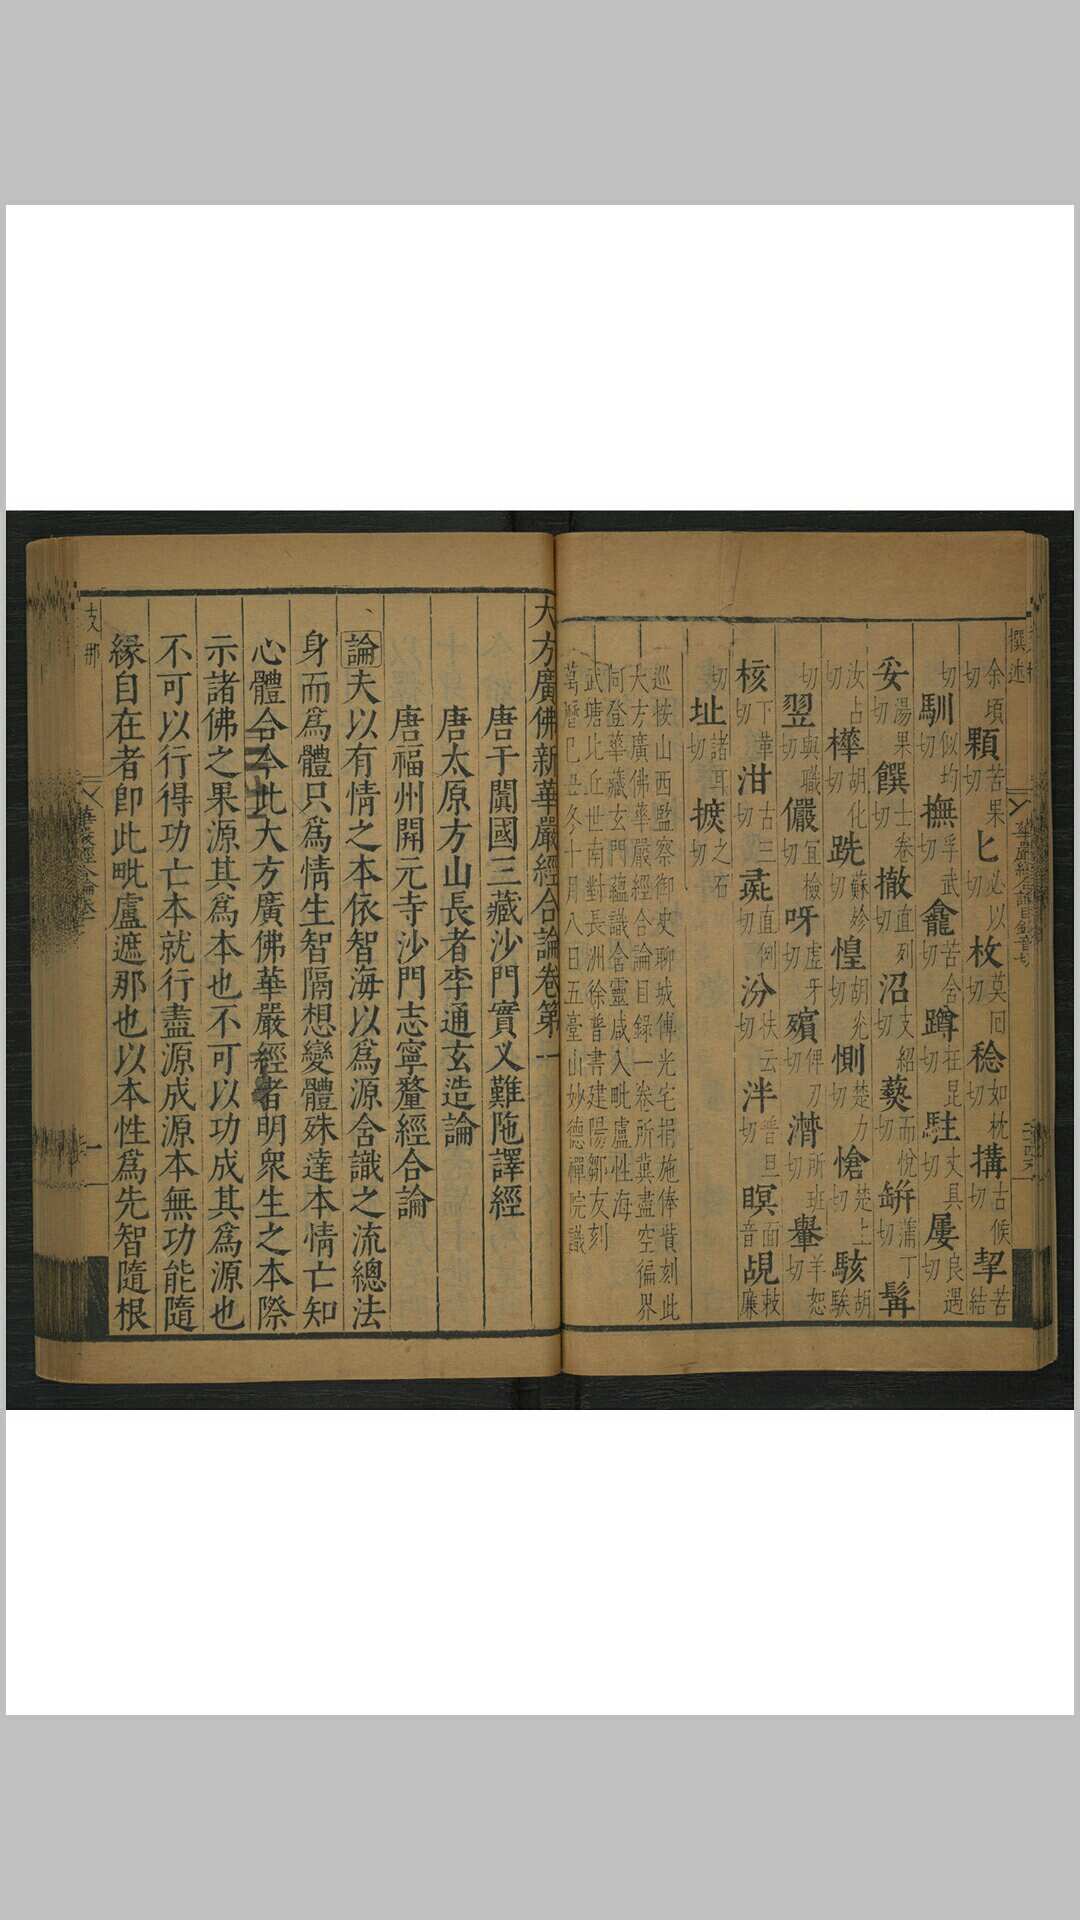 撰述
余頃切 顆 苦果切 匕 必以切 枚 莫回切 稔 如枕切 搆 古候切 挈 苦結
切 馴 似均切 撫 孚武切 龕 苦含切 蹲 在昆切 駐 丈具切 屢 良遇切
妥 湯果切 饌 士卷切 撤 直列切 沼 支紹切 爇 而悅切 缾 蒲丁切 髯
汝占切 樺 胡化切 跣 蘇妗切 惶 胡光切 惻 楚力切 愴 楚上切 駭 胡騃
切 翌 與職切 儼 宜檢切 呀 虛牙切 殯 俾刃切 濟 所班切 轝 羊恕切
核 下革切 泔 古三切 彘 直例切 汾 扶云切 泮 普旦切 瞑 面音 覘 敕廉
切 址 諸耳切 摭 之石切
巡按山西監察御史聊城傅光宅捐施俸貲刻此
大方廣佛華嚴經合論目錄一卷所冀盡空徧界
同登華藏玄門蘊識含靈咸入毗盧性海
武塘比丘世南對長洲徐普書建陽鄒友刻
萬曆己丑冬十月八日五臺山妙德禪院識
大方廣佛新華嚴經合論卷第一
唐于闐國三藏沙門實叉難陁譯經
唐太原方山長者李通玄造論
唐福州開元寺沙門志寧釐經合論
論夫以有情之本依智海以爲源含識之流總法
身而爲體只爲情生智隔想變體殊達本情亡知
心體合今此大方廣佛華嚴經者明衆生之本際
示諸佛之果源其爲本也不可以功成其爲源也
不可以行得功亡本就行盡源成源本無功能隨
緣自在者卽此毗盧遮那也以本性爲先智隨根
支那
華嚴經合論卷一